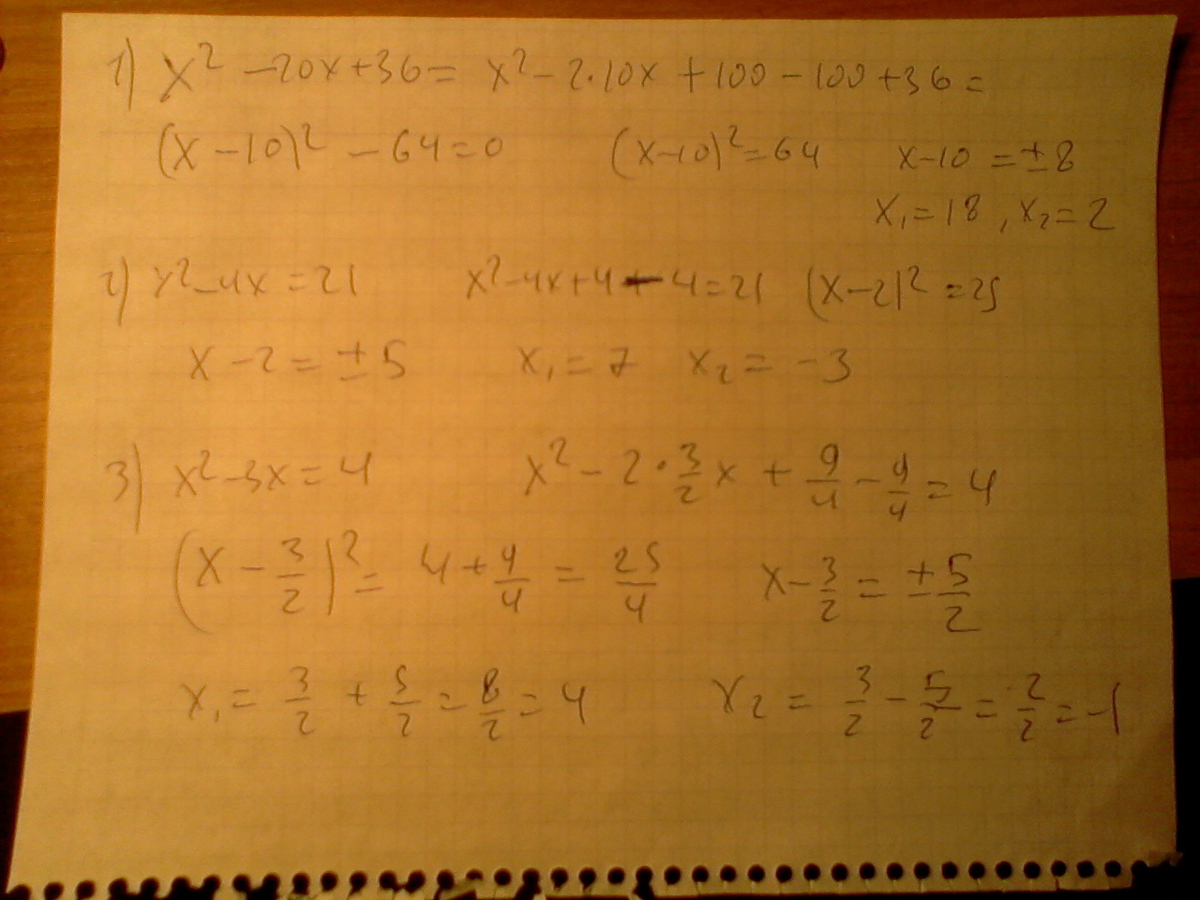 1) x² - 20x + 36 = x² - 2·10x + 100 - 100 + 36 =
(x - 10)² - 64 = 0 (x-10)² = 64 x-10 = ±8
x₁ = 18, x₂ = 2
2) x² - 4x = 21 x² - 4x + 4 - 4 = 21 (x-2)² = 25
x - 2 = ±5 x₁ = 7 x₂ = -3
3) x² - 3x = 4 x² - 2·3/2 x + 9/4 - 9/4 = 4
(x - 3/2)² = 4 + 9/4 = 25/4 x - 3/2 = ±5/2
x₁ = 3/2 + 5/2 = 8/2 = 4 x₂ = 3/2 - 5/2 = 2/2 = -1